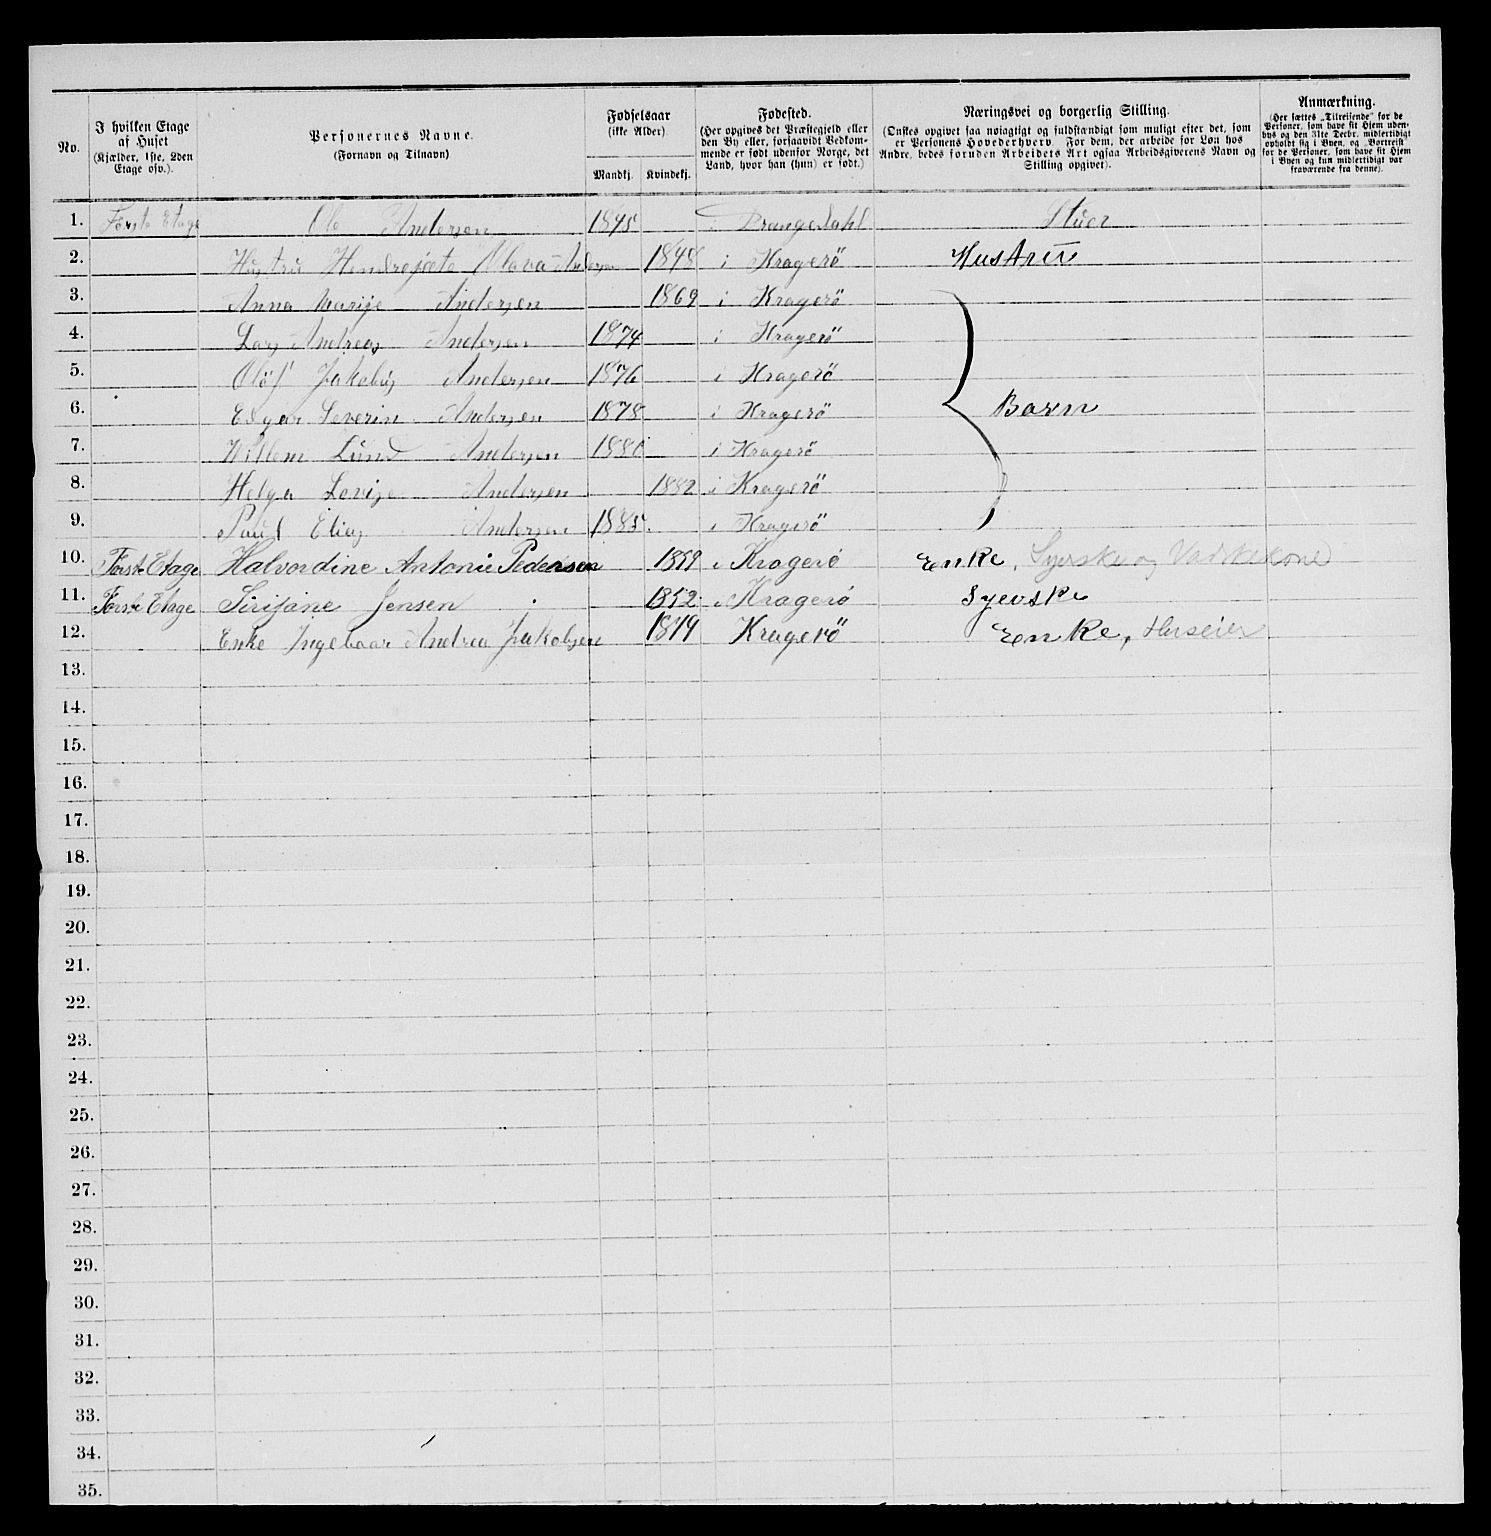 No.
I hvilken Etage af Huset (Kjælder, 1ste, 2den Etage osv.).
Personernes Navne. (Fornavn og Tilnavn)
Fødselsaar (ikke Alder). Mandkj. Kvindekj.
Fødested. (Her opgives det Præstegjeld eller den By eller, forsaavidt Bedkommende er født udenfor Norge, det Land, hvor han (hun) er født.)
Næringsvei og borgerlig Stilling. (Ønskes opgivet saa nøiagtigt og fuldstændigt som muligt efter det, som er Personens Hovederhverv. For dem, der arbeide for Løn hos Andre, bedes foruden Arbeidets Art ogsaa Arbeidsgiverens Navn og Stilling opgivet).
Anmærkning. (Her sættes „Tilreisende" for de Personer, som have sit Hjem udenbys og den 31te Decbr. midlertidigt opholdt sig i Byen, og „Bortreist" for de Personer, som have sit Hjem i Byen og kun midlertidigt var fraværende fra denne).
1. Første Etage Ole Andersen 1845 Drangedahl Stuer
2. Hustru Olava Andersen 1848 i Kragerö Hustru
3. Anna Marije Andersen 1869 i Kragerö
4. Lars Andreas Andersen 1874 i Kragerö
5. Olöf Jakobus Andersen 1876 i Kragerö
6. Edgar Severin Andersen 1878 i Kragerö Barn
7. Willem Lund Andersen 1880 i Kragerö
8. Helga Lovise Andersen 1882 i Kragerö
9. Paul Elias Andersen 1885 i Kragerö
10. Første Etage Halvordine Antonie Pedersen 1859 i Kragerø Enke, Syerske og Vaskekone
11. Første Etage Sirijane Jensen 1852 i Kragerø Syerske
12. Enke Ingebaar Andrea Jakobsen 1819 Kragerö Enke, Huseier
13.
14.
15.
16.
17.
18.
19.
20.
21.
22.
23.
24.
25.
26.
27.
28.
29.
30.
31.
32.
33.
34.
35.